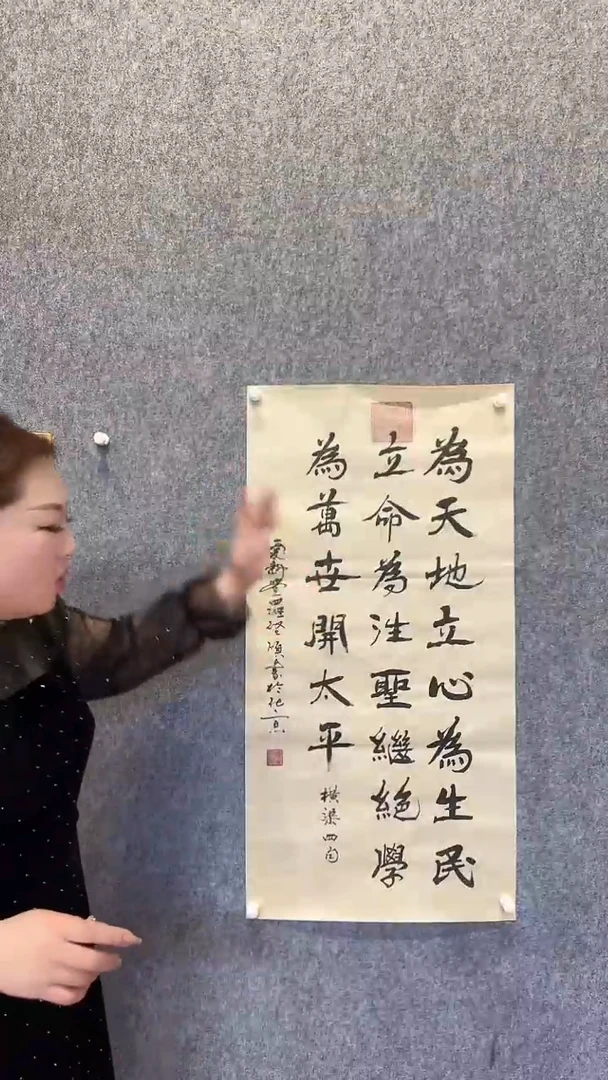 為天地立心為生民
立命為往聖繼絕學
為萬世開太平
橫渠四句
書於北京